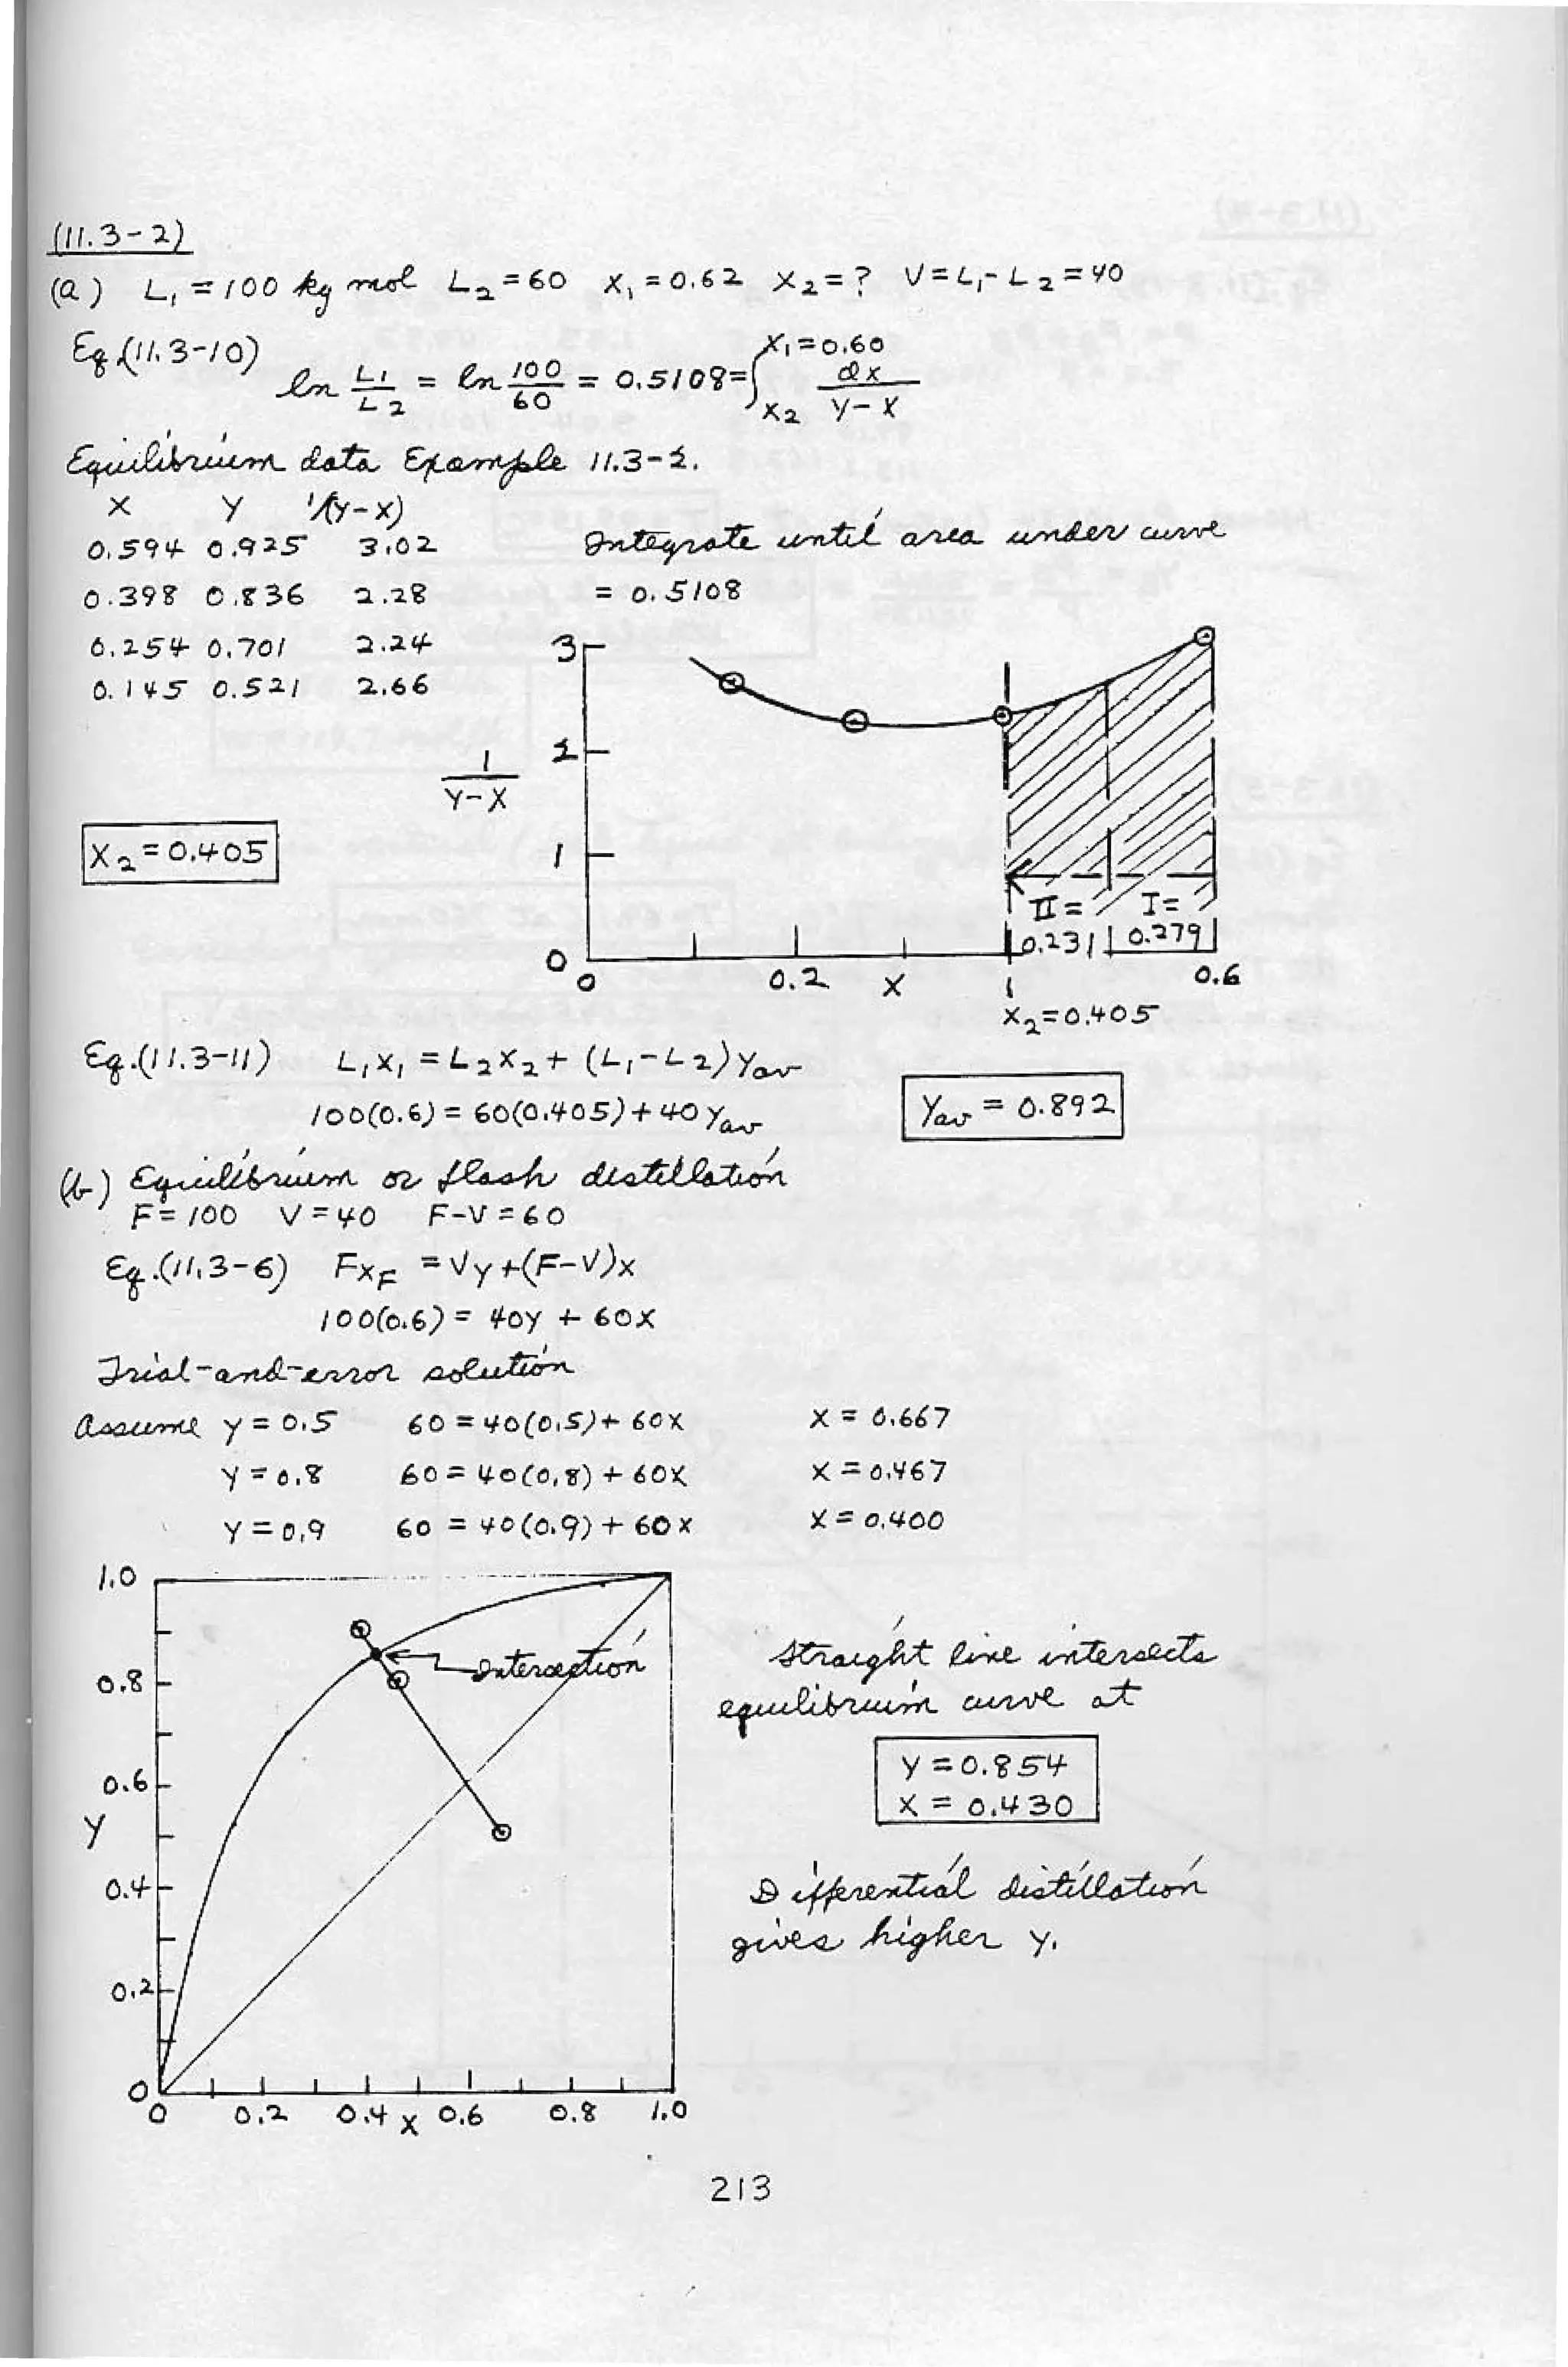 (11.3-2)
(a) L₁ = 100 kg mol L₂ = 60 x₁ = 0.62 x₂ = ? V = L₁ - L₂ = 40
Eq.(11.3-10) ln L₁/L₂ = ln 100/60 = 0.5108 = ∫ x₁=0.60 x₂ dx/(y-x)
Equilibrium data Example 11.3-2.
x y 1/(y-x)
0.594 0.925 3.02
0.398 0.836 2.28
0.254 0.701 2.24
0.145 0.521 2.66
Integrate until area under curve
= 0.5108
3
2
1
0
1/(y-x)
II = 0.231
I = 0.279
0 0.2 x 0.6
x₂=0.405
x₂ = 0.405
Eq.(11.3-11) L₁x₁ = L₂x₂ + (L₁-L₂)yav
100(0.6) = 60(0.405) + 40yav
yav = 0.892
(b) Equilibrium or flash distillation
F = 100 V = 40 F-V = 60
Eq.(11.3-6) FxF = Vy + (F-V)x
100(0.6) = 40y + 60x
Trial-and-error solution
Assume y = 0.5 60 = 40(0.5) + 60x x = 0.667
y = 0.8 60 = 40(0.8) + 60x x = 0.467
y = 0.9 60 = 40(0.9) + 60x x = 0.400
1.0
0.8
0.6
y
0.4
0.2
0
Intersection
0 0.2 0.4 x 0.6 0.8 1.0
Straight line intersects
equilibrium curve at
y = 0.854
x = 0.430
Differential distillation
gives higher y.
213